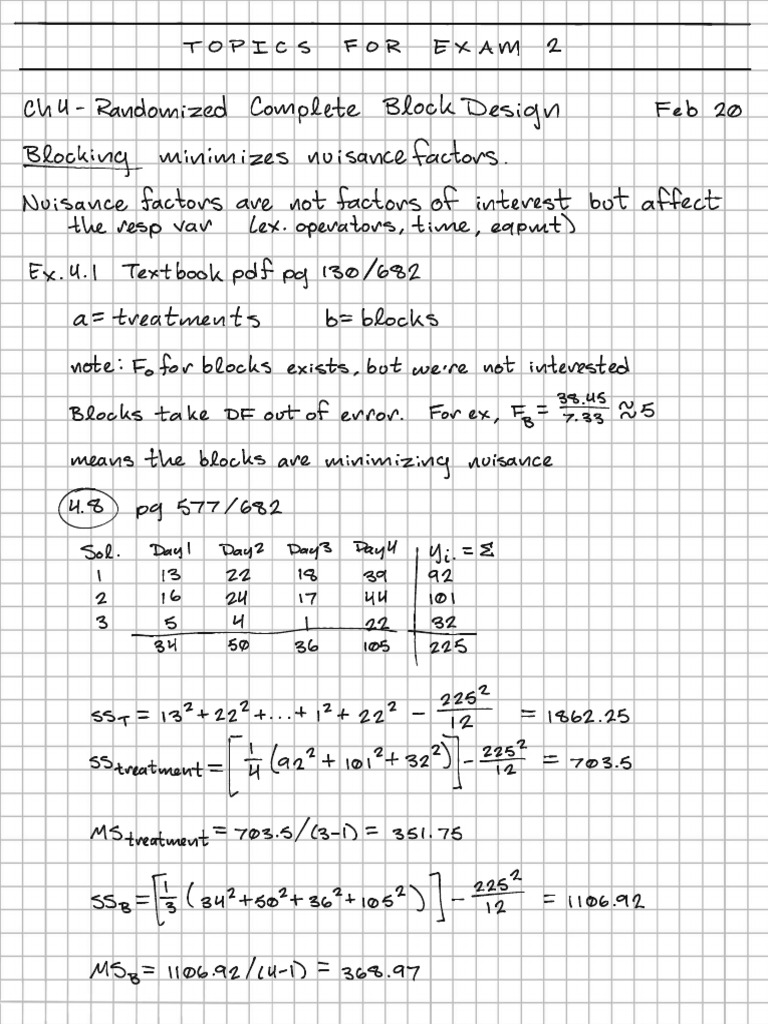 TOPICS FOR EXAM 2
Ch 4 - Randomized Complete Block Design Feb 20
Blocking minimizes nuisance factors.
Nuisance factors are not factors of interest but affect
the resp var (ex. operators, time, eqpmt)
Ex. 4.1 Textbook pdf pg 130/682
a = treatments b = blocks
note: F₀ for blocks exists, but we're not interested
Blocks take DF out of error. For ex, F_B = 38.45/7.33 ≈ 5
means the blocks are minimizing nuisance
4.8 pg 577/682
Sol. Day1 Day2 Day3 Day4 yᵢ. = Σ
1 13 22 18 39 92
2 16 24 17 44 101
3 5 4 1 22 32
34 50 36 105 225
SS_T = 13² + 22² + ... + 1² + 22² - 225²/12 = 1862.25
SS_treatment = [1/4 (92² + 101² + 32²)] - 225²/12 = 703.5
MS_treatment = 703.5/(3-1) = 351.75
SS_B = [1/3 (34² + 50² + 36² + 105²)] - 225²/12 = 1106.92
MS_B = 1106.92/(4-1) = 368.97